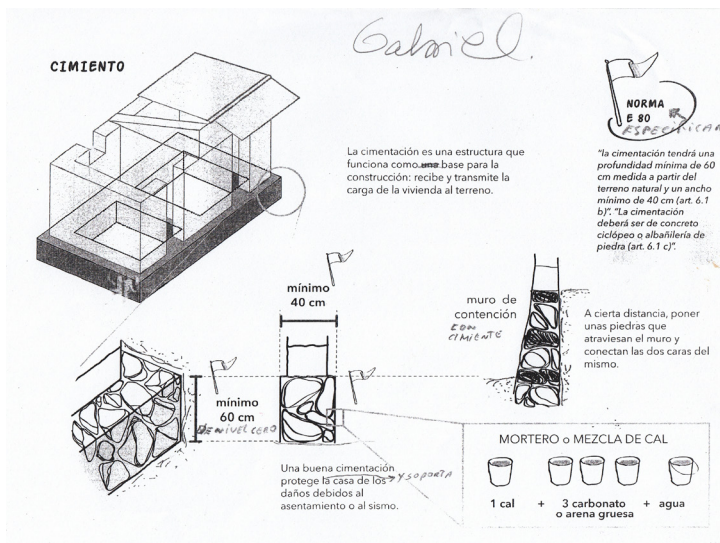 Gabriel.
CIMIENTO
NORMA
E 80
ESPECIFICAR
La cimentación es una estructura que
funciona como una base para la
construcción: recibe y transmite la
carga de la vivienda al terreno.
"la cimentación tendrá una
profundidad mínima de 60
cm medida a partir del
terreno natural y un ancho
mínimo de 40 cm (art. 6.1
b)". "La cimentación
deberá ser de concreto
ciclópeo o albañilería de
piedra (art. 6.1 c)".
mínimo
40 cm
muro de
contención
CON
CIMIENTE
A cierta distancia, poner
unas piedras que
atraviesan el muro y
conectan las dos caras del
mismo.
mínimo
60 cm
DE NIVEL CERO
Una buena cimentación
protege la casa de los
daños debidos al
asentamiento o al sismo.
Y SOPORTA
MORTERO o MEZCLA DE CAL
1 cal + 3 carbonato + agua
o arena gruesa